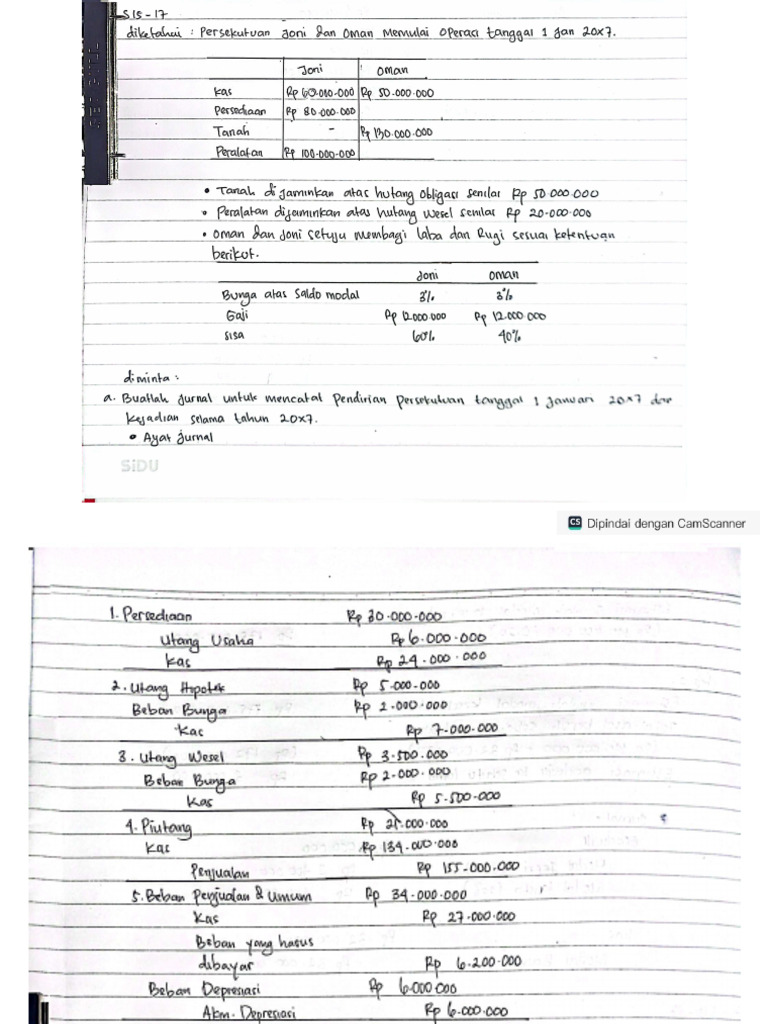 S15-17
diketahui : Persekutuan Joni dan Oman Memulai Operasi tanggal 1 Jan 20x7.
Joni Oman
Kas Rp 60.000.000 Rp 50.000.000
Persediaan Rp 80.000.000
Tanah - Rp 130.000.000
Peralatan Rp 100.000.000
• Tanah dijaminkan atas hutang Obligasi senilai Rp 50.000.000
• Peralatan dijaminkan atas hutang wesel senilai Rp 20.000.000
• Oman dan Joni setuju membagi laba dan Rugi sesuai ketentuan
berikut.
Joni Oman
Bunga atas Saldo modal 3% 3%
Gaji Rp 12.000.000 Rp 12.000.000
Sisa 60% 40%
diminta :
a. Buatlah Jurnal untuk mencatat Pendirian Persekutuan tanggal 1 Januari 20x7 dan
Kejadian selama tahun 20x7.
• Ayat Jurnal
SiDU
CS Dipindai dengan CamScanner
1. Persediaan Rp 30.000.000
Utang Usaha Rp 6.000.000
Kas Rp 24.000.000
2. Utang Hipotek Rp 5.000.000
Beban Bunga Rp 2.000.000
Kas Rp 7.000.000
3. Utang Wesel Rp 3.500.000
Beban Bunga Rp 2.000.000
Kas Rp 5.500.000
4. Piutang Rp 21.000.000
Kas Rp 134.000.000
Penjualan Rp 155.000.000
5. Beban Penjualan & Umum Rp 34.000.000
Kas Rp 27.000.000
Beban yang harus
dibayar Rp 6.200.000
Beban Depresiasi Rp 6.000.000
Akm. Depresiasi Rp 6.000.000